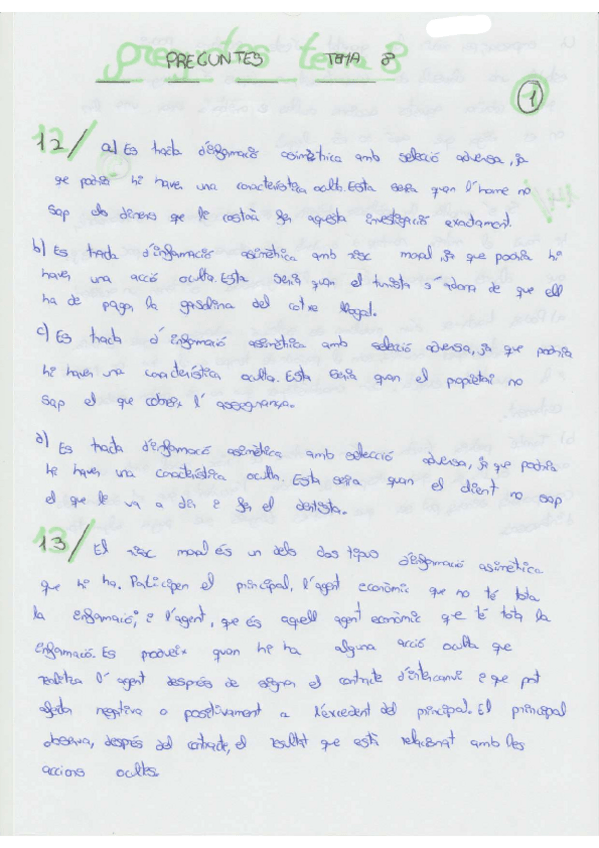 preguntes tema 8
PREGUNTES TEMA 8
1
12/ a) Es tracta d'informació asimètrica amb selecció adversa, ja
que podria hi haver una característica oculta. Esta seria quan l'home no
sap els diners que le costarà fer aquesta investigació exactament.
b) Es tracta d'informació asimètrica amb risc moral, ja que podria hi
haver una acció oculta. Esta seria quan el turista s'adona de que ell
ha de pagar la gasolina del cotxe llogat.
c) Es tracta d'informació asimètrica amb selecció adversa, ja que podria
hi haver una característica oculta. Esta seria quan el propietari no
sap el que cobreix l'assegurança.
d) Es tracta d'informació asimètrica amb selecció adversa, ja que podria
hi haver una característica oculta. Esta seria quan el client no sap
el que le va a dir i fer el dentista.
13/ El risc moral és un dels dos tipus d'informació asimètrica
que hi ha. Participen el principal, l'agent econòmic que no té tota
la informació; i l'agent, que és aquell agent econòmic que té tota la
informació. Es produeix quan hi ha alguna acció oculta que
realitza l'agent després de signar el contracte d'intercanvi i que pot
afectar negativa o positivament a l'excedent del principal. El principal
observa, després del contracte, el resultat que està relacionat amb les
accions ocultes.